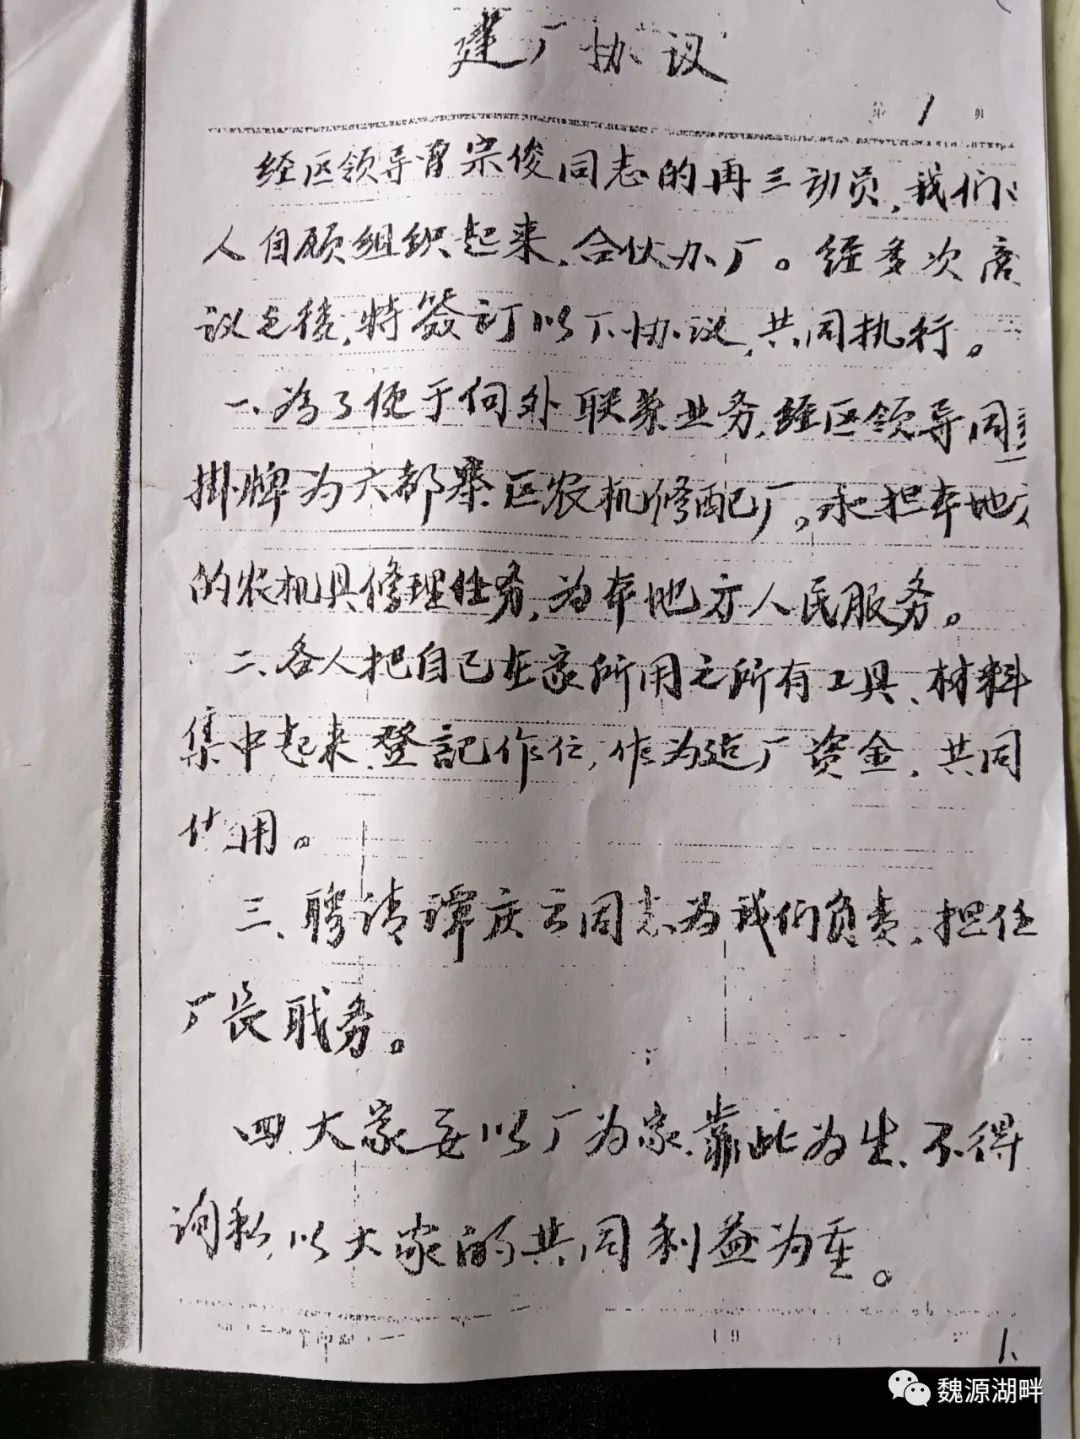 建厂协议
第1页
经区领导曾宗俊同志的再三动员,我们
人自顾组织起来,合伙办厂。经多次商
议之後,特簽订以下协议,共同执行。
一、為了便于向外联系业务,经区领导同意
掛牌为六都寨区农机修配厂。承担本地方
的农机具修理任务,为本地方人民服务。
二、各人把自己在家所用之所有工具、材料
集中起来,登記作价,作为建厂资金,共同
使用。
三、聘请谭庆云同志为我们负责,担任
厂長职务。
四、大家要以厂为家,靠此为生、不得
询私,以大家的共同利益为重。
19
1、
魏源湖畔